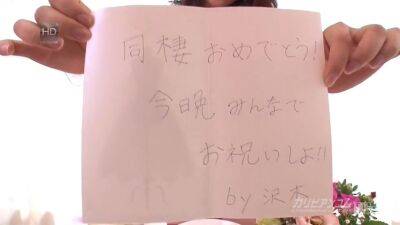 HD
同棲おめでとう!
今晩みんなで
お祝いしよ!!
by 沢木
カリビアンコム